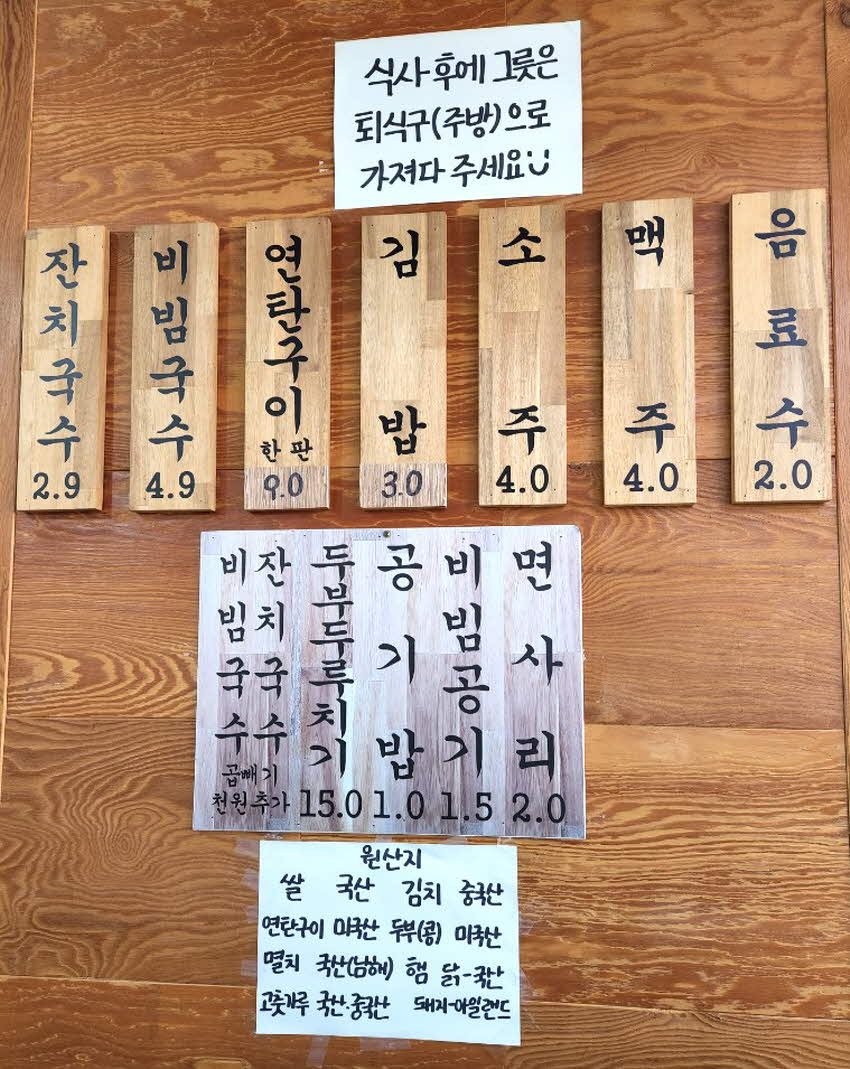 식사 후에 그릇은
퇴식구(주방)으로
가져다 주세요
잔치국수
2.9
비빔국수
4.9
연탄구이
한판
9.0
김밥
3.0
소주
4.0
맥주
4.0
음료수
2.0
비빔국수 잔치국수
곱빼기
천원 추가
두부두루치기
15.0
공기밥
1.0
비빔공기
1.5
면사리
2.0
원산지
쌀 국산 김치 중국산
연탄구이 미국산 두부(콩) 미국산
멸치 국산(남해) 햄 닭-국산
고춧가루 국산·중국산 돼지-아일랜드